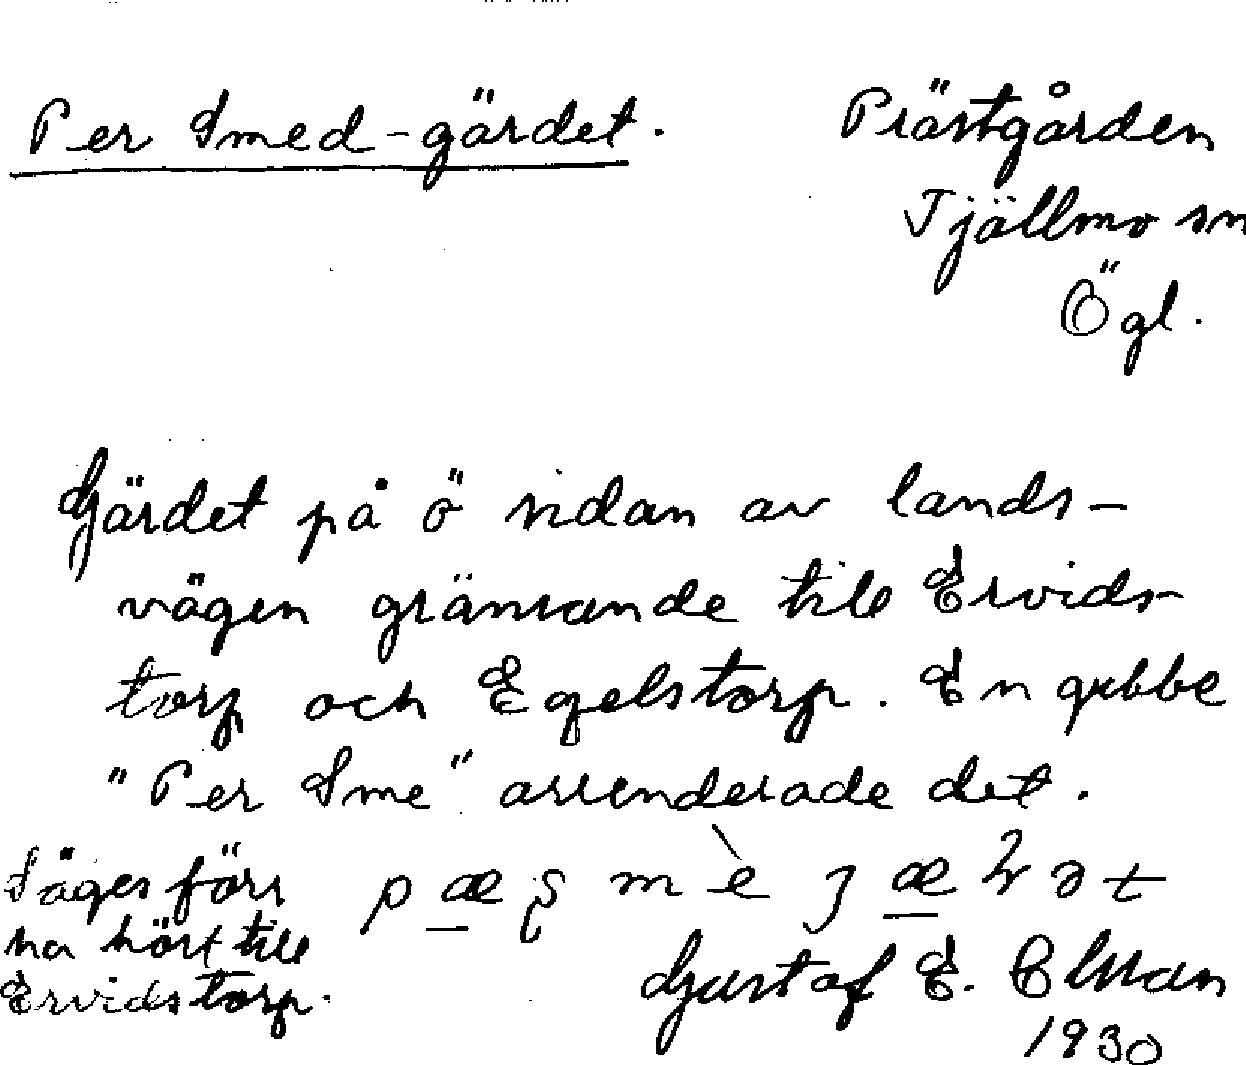 Per Smed-gärdet.
Prästgården
Tjällmo sn
Ögl.
Gärdet på ö sidan av lands-
vägen gränsande till Ervids-
torp och Egelstorp. En gubbe
"Per Sme" arrenderade det.
Säges förr
ha hört till
Ervidstorp.
Gustaf E. Elman
1930